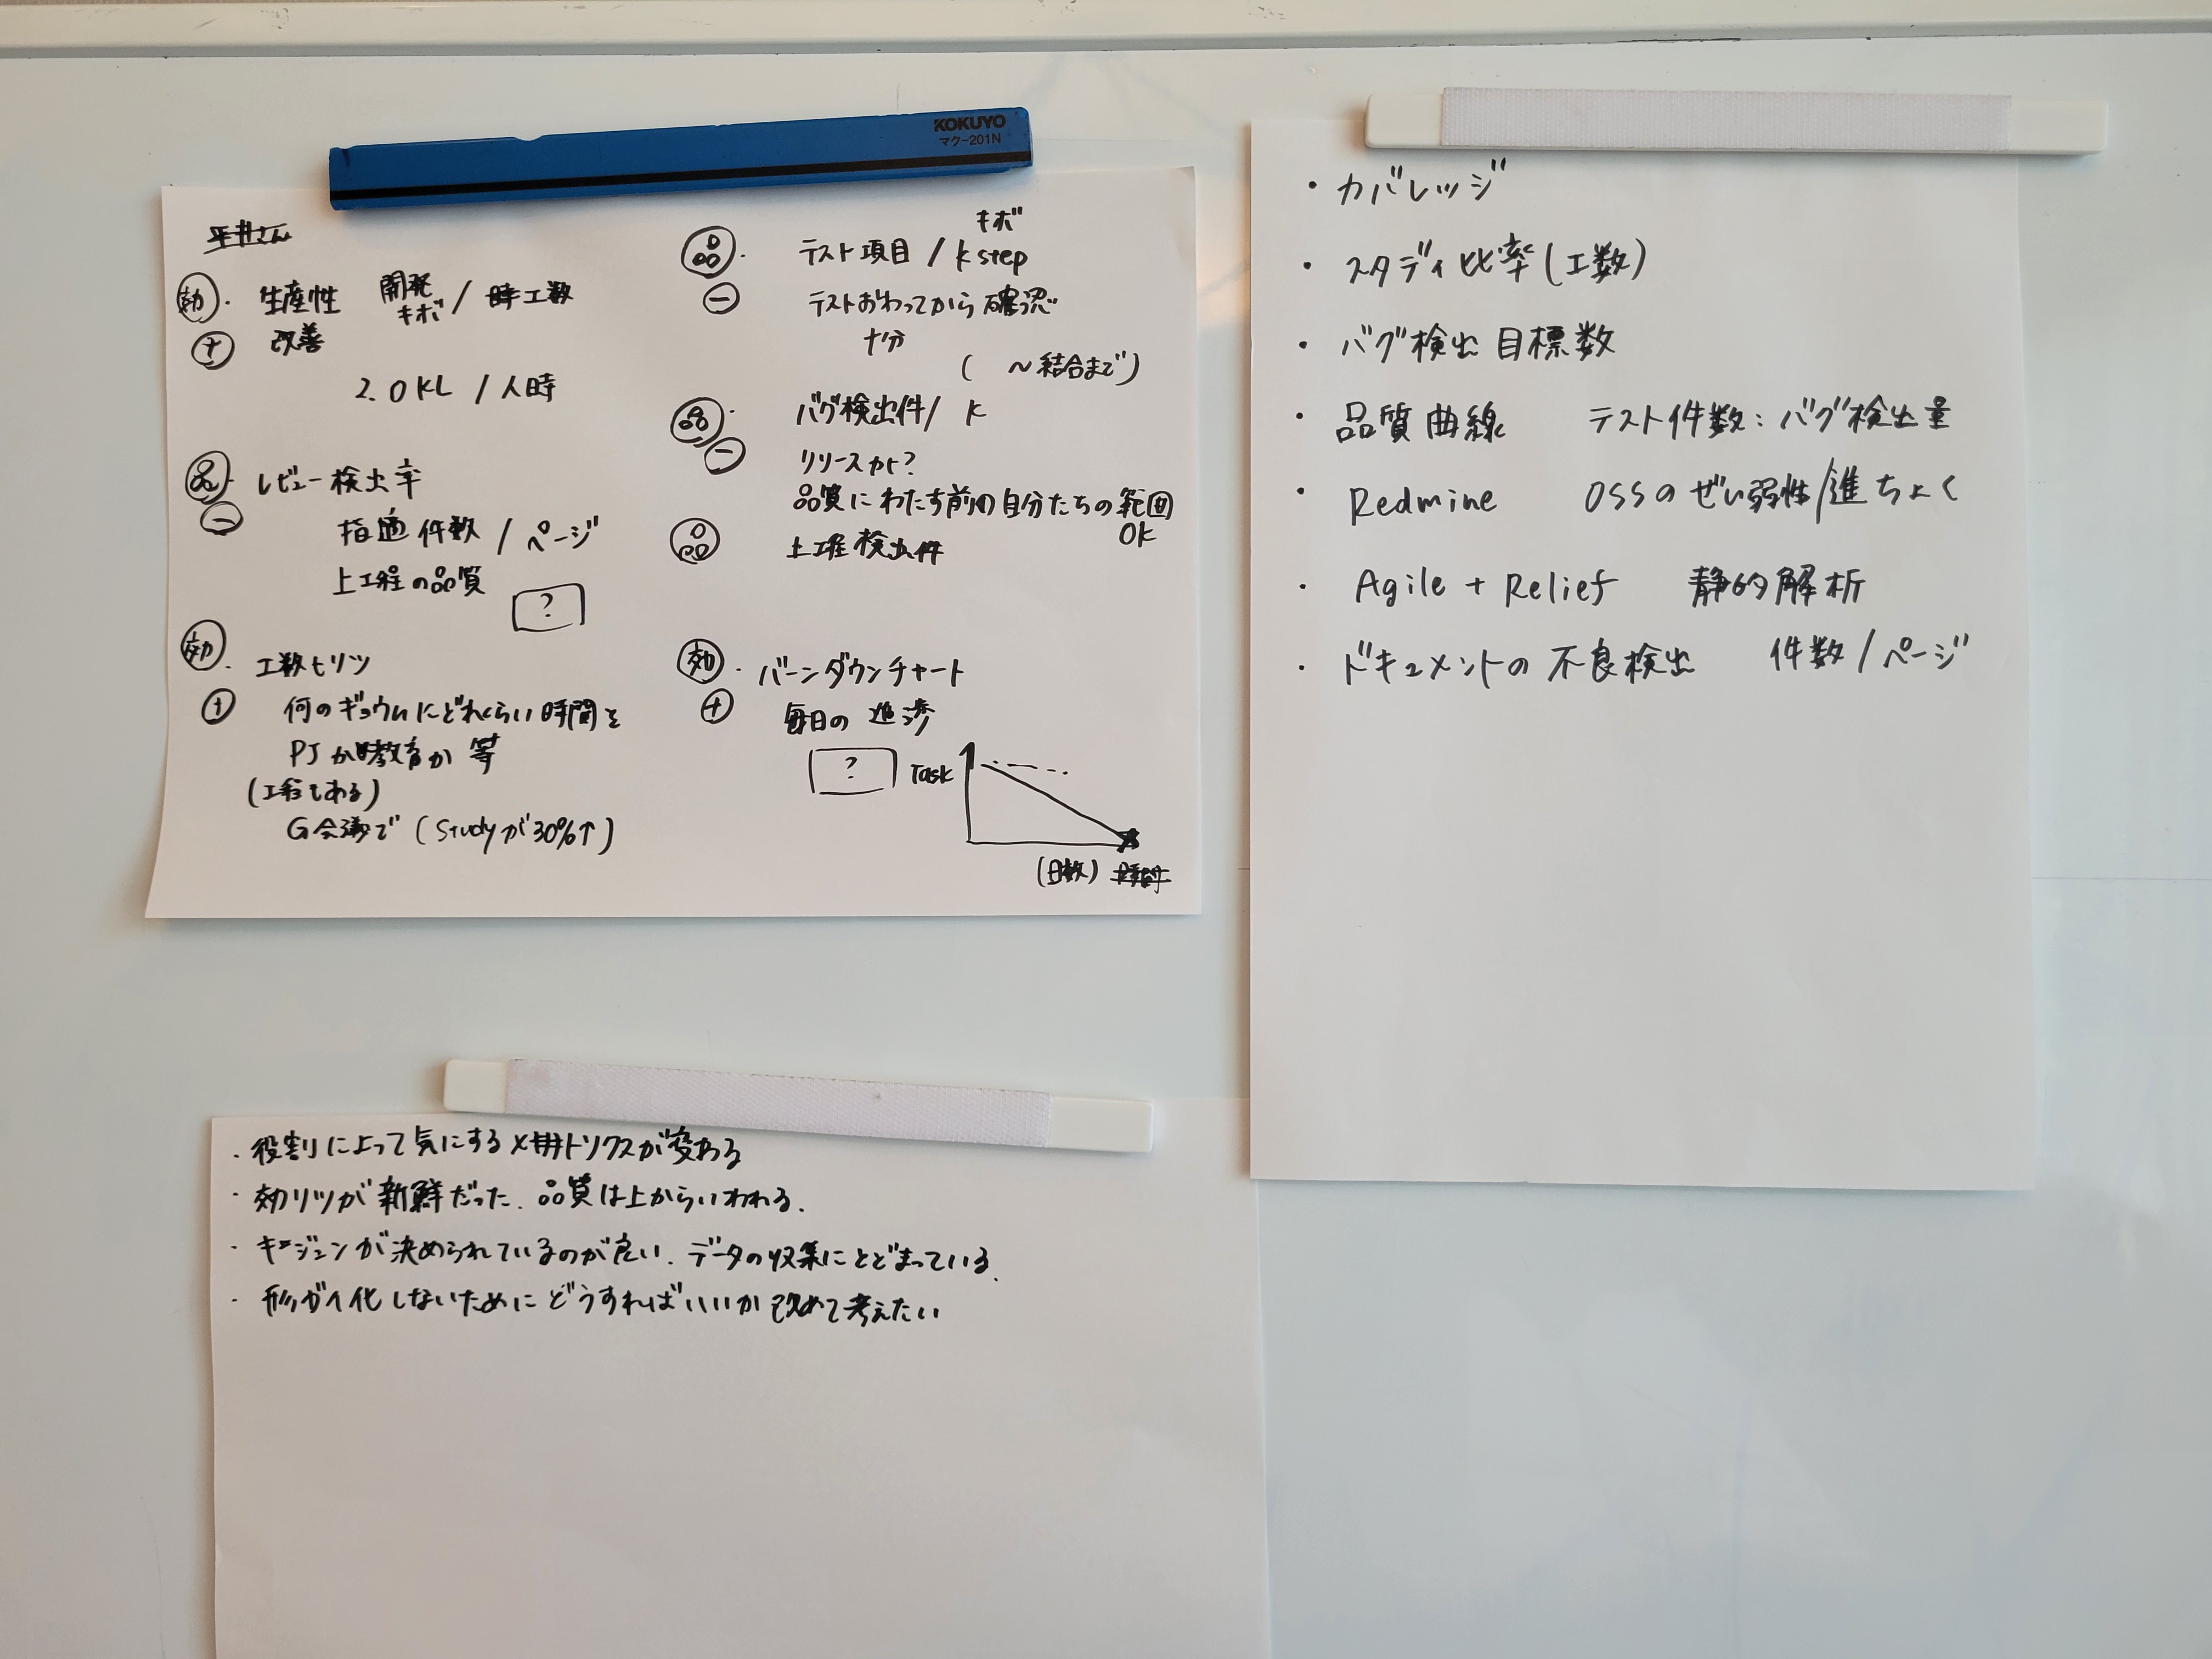 KOKUYO
マク-201N
平井さん
効 ・ 生産性 開発キボ / 工数
+ 改善
2.0KL / 人時
品 ・ レビュー検出率
− 指適件数 / ページ
上工程の品質
?
効 ・ 工数ヒリツ
+ 何のギョウムにどれくらい時間を
PJか教育か 等
(工程もある)
G会議で (Studyが30%↑)
キボ
品 ・ テスト項目 / k step
− テストおわってから確認
十分
( ～結合まで)
品 ・ バグ検出件/ k
− リリースかト?
品質にわたす前の自分たちの範囲
OK
品 上工程検出件
効 ・ バーンダウンチャート
+ 毎日の進渉
?
Task
(日数)
・カバレッジ
・スタディ比率(工数)
・バグ検出目標数
・品質曲線 テスト件数:バグ検出量
・Redmine OSSのぜい弱性/進ちょく
・Agile + Relief 静的解析
・ドキュメントの不良検出 件数/ページ
・役割によって気にするメトリクスが変わる
・効リツが新鮮だった. 品質は上からいわれる.
・キジュンが決められているのが良い. データの収集にとどまっている.
・形ガイ化しないためにどうすればいいか改めて考えたい